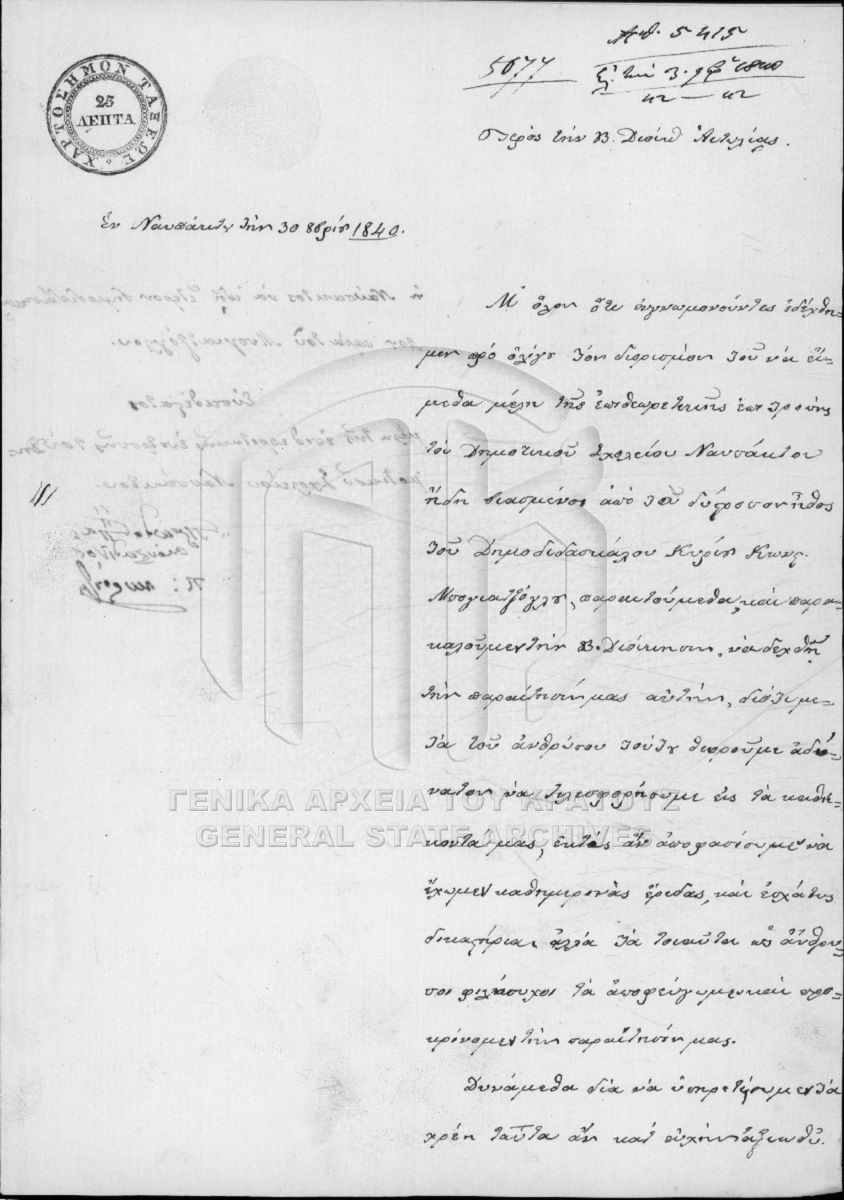 ΧΑΡΤΟΣΗΜΟΝ ΤΑΞΕΩΣ
25
ΛΕΠΤΑ
Ἀριθ. 5415
5677
τὴν 3. 9βρ 1840
Πρὸς τὴν Β. Διοίκ Αἰτωλίας.
Ἐν Ναυπάκτῳ τὴν 30 8βρίου 1840.
Μ' ὅλον ὅτι εὐγνωμονοῦντες ἐδέχθη-
μεν πρὸ ὀλίγου τὸν διορισμὸν τοῦ νὰ εἴ-
μεθα μέλη τῆς ἐπιθεωρητικῆς ἐπιτροπῆς
τοῦ Δημοτικοῦ Σχολείου Ναυπάκτου
ἤδη βιασμένοι ἀπὸ τὸ δύστροπον ἦθος
τοῦ Δημοδιδασκάλου Κυρίου Κωνς.
Μπογιατζόγλου, παραιτούμεθα, καὶ παρα-
καλοῦμεν τὴν Β. Διοίκησιν, νὰ δεχθῇ
τὴν παραίτησίν μας αὐτήν, διότι με-
τὰ τοῦ ἀνθρώπου τούτου θεωροῦμε ἀδύ-
νατον νὰ τελεσφορήσωμε εἰς τὰ καθή-
κοντά μας, ἐκτὸς ἂν ἀποφασίσωμεν νὰ
ἔχωμεν καθημερινὰς ἔριδας, καὶ ἐσχάτως
δικαστήρια, ἀλλὰ τὰ τοιαῦτα ὡς ἄνθρω-
ποι φιλήσυχοι τὰ ἀποφεύγωμεν καὶ προ-
κρίνομεν τὴν παραίτησίν μας.
Δυνάμεθα διὰ νὰ ὑπηρετήσωμεν τὰ
χρέη ταῦτα ἂν κατ' εὐχὴν
ΓΕΝΙΚΑ ΑΡΧΕΙΑ ΤΟΥ ΚΡΑΤΟΥΣ
GENERAL STATE ARCHIVES